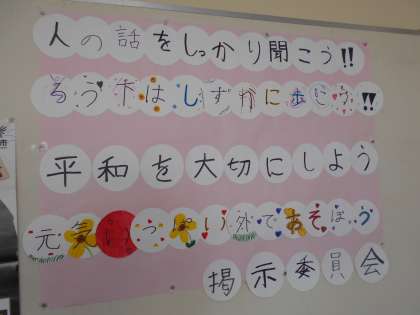 人の話をしっかり聞こう!!
ろう下はしずかに歩こう!!
平和を大切にしよう
元気いっぱい外であそぼう
掲示委員会